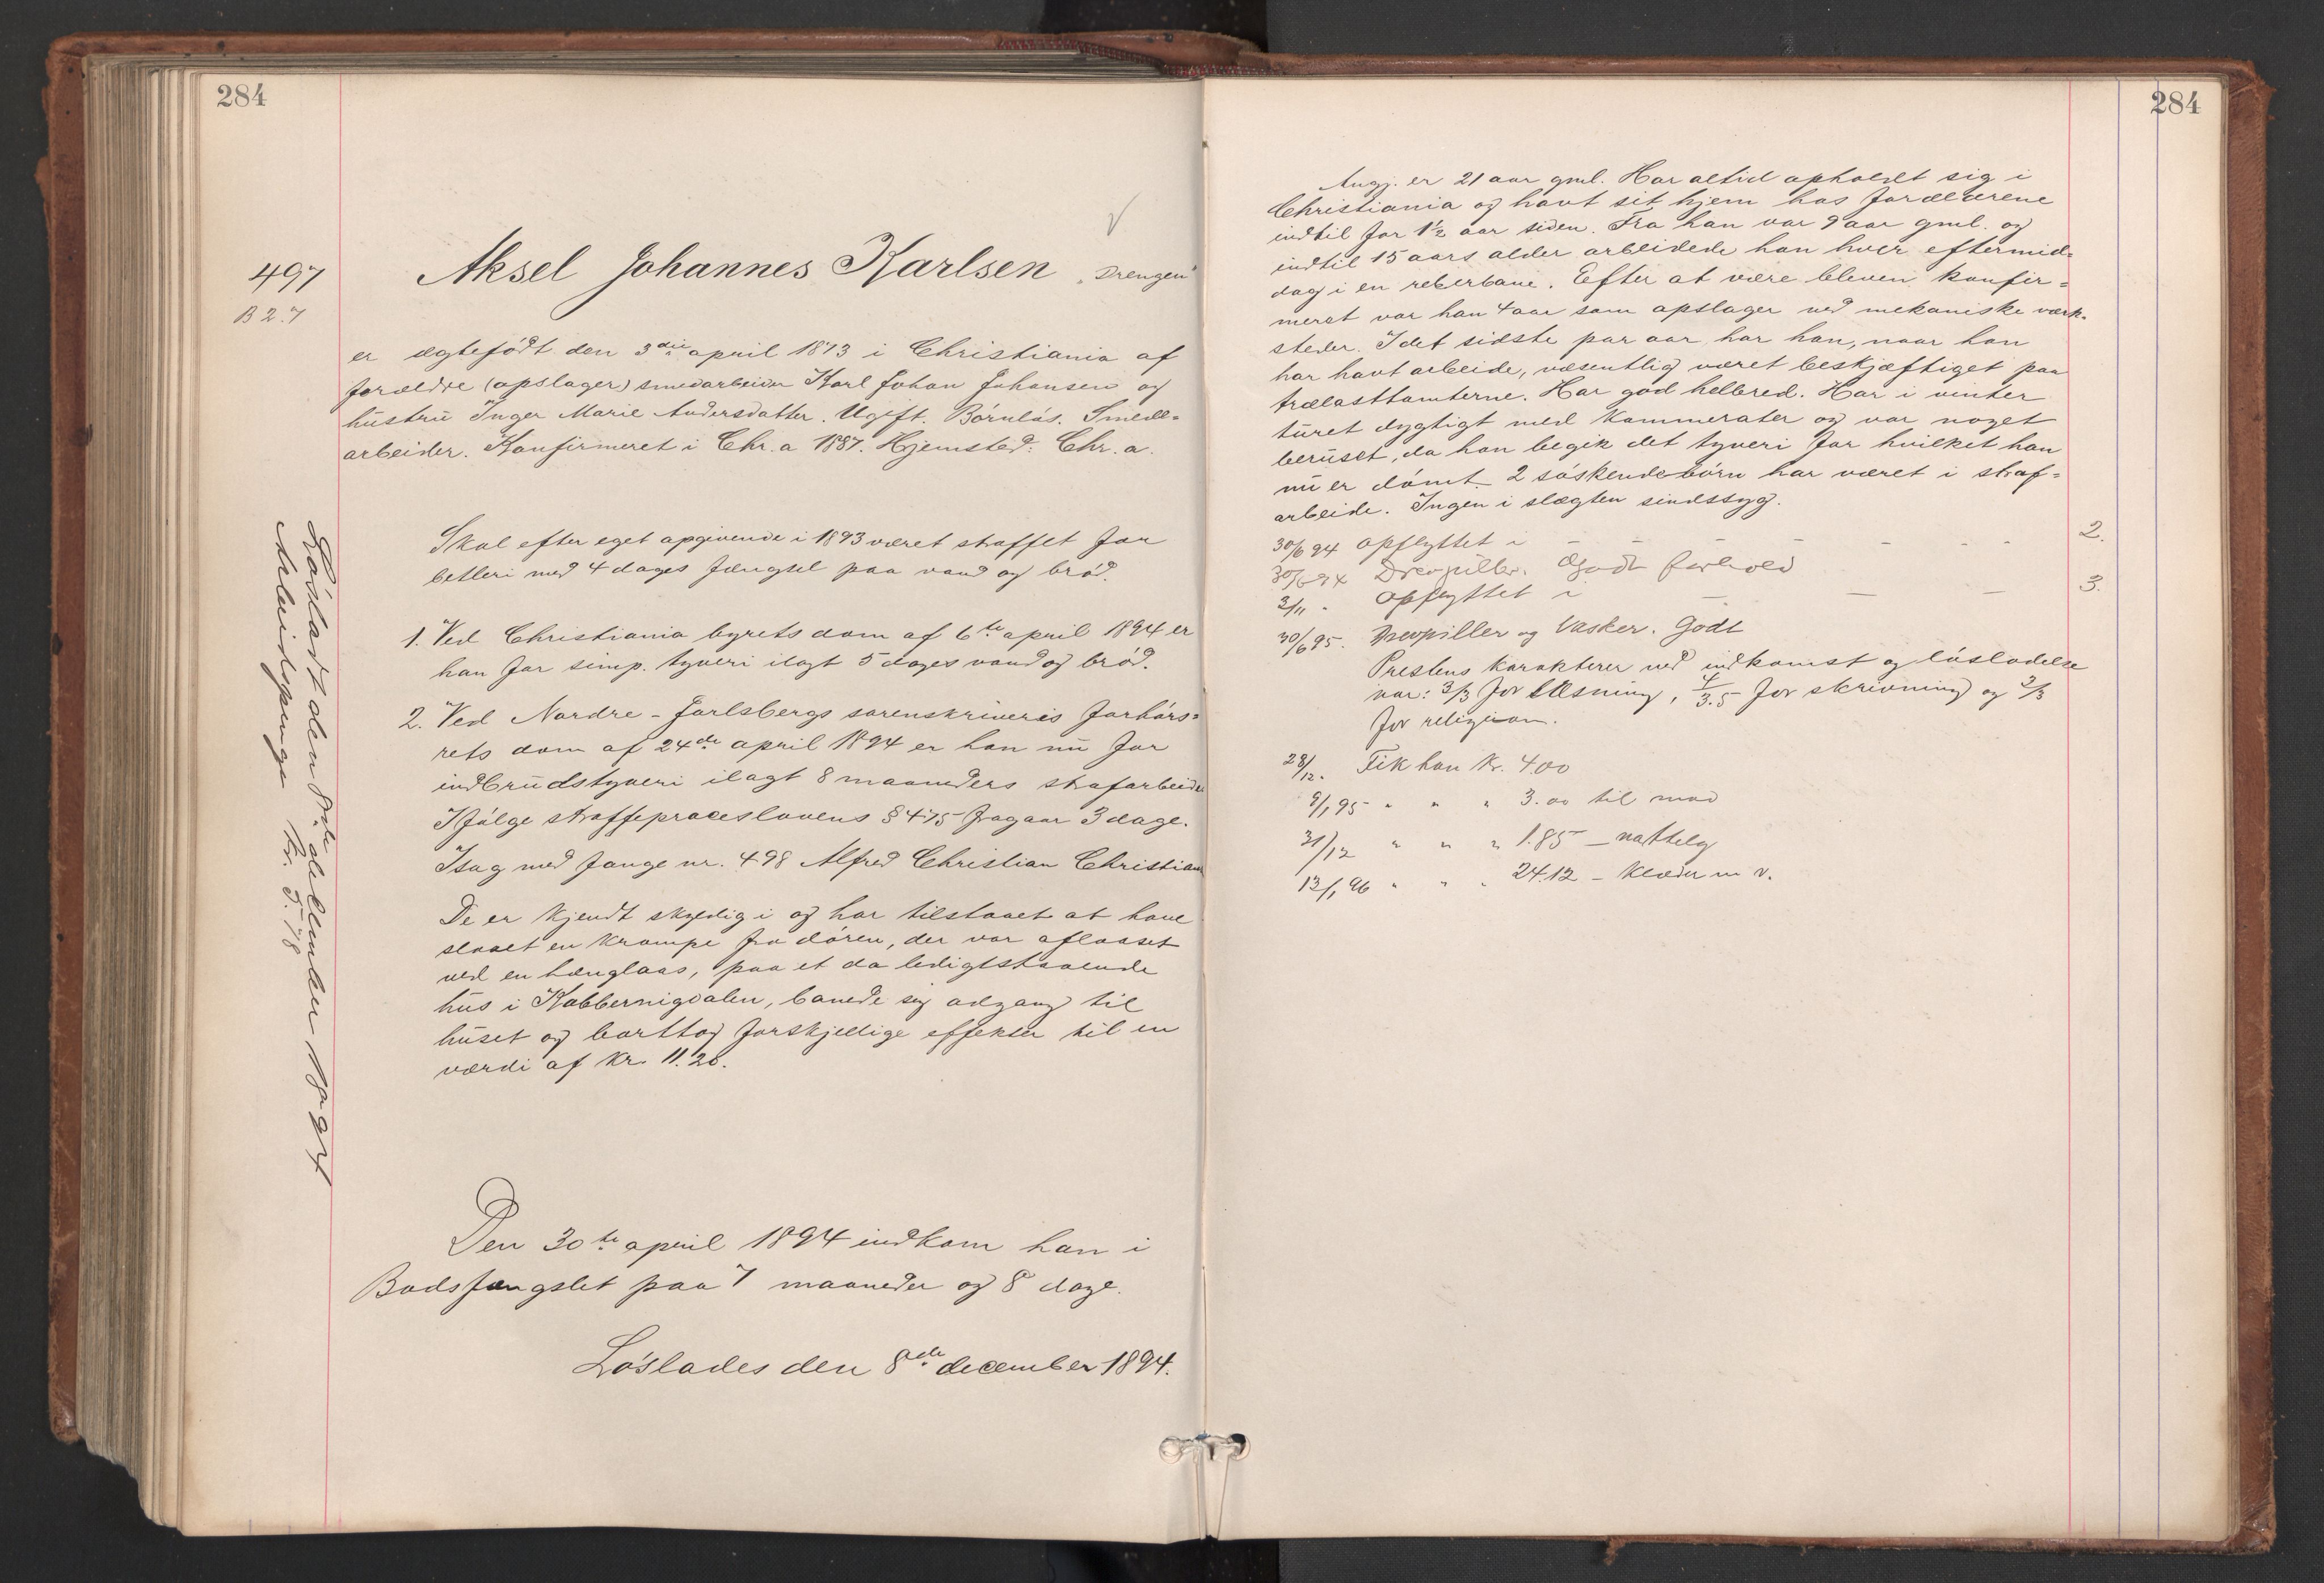 284
497
B 2.7
Aksel Johannes Karlsen „Drengen"
er ægtefödt den 3die april 1873 i Christiania af
forældre (opslager) smedarbeider Karl Johan Johansen og
hustru Inger Marie Andersdatter. Ugift. Börnlös. Smede-
arbeider. Konfirmeret i Chr.a 1887. Hjemsted: Chr.a.
Skal efter eget opgivende i 1893 været straffet for
betleri med 4 dages fængsel paa vand og bröd.
1. Ved Christiania byrets dom af 6te april 1894 er
han for simp. tyveri ilagt 5 dages vand og bröd.
2. Ved Nordre-Jarlsbergs sorenskriveris forhörs-
rets dom af 24de april 1894 er han nu for
indbrudstyveri ilagt 8 maaneders strafarbeide
Ifölge straffeproceslovens § 475 fragaar 3 dage.
I sag med fange nr. 498 Alfred Christian Christian
De er kjendt skyldig i og har tilstaaet at have
slaaet en krampe fra dören, der var aflaaset
ved en hænglaas, paa et da ledigtstaaende
hus i Kobbernigdalen, banede sig adgang til
huset og borttog forskjellige effekter til en
værdi af Kr. 11.20.
Den 30te april 1894 indkom han i
Bodsfængslet paa 7 maaneder og 8 dage.
Löslades den 8de december 1894.
Lösladt den 8de december 1894
Arbeidspenge Kr. 5.78
284
Angj. er 21 aar gml. Har altid opholdt sig i
Christiania og havt sit hjem hos forældrene
indtil for 1½ aar siden. Fra han var 9 aar gml. og
indtil 15 aars alder arbeidede han hver eftermid-
dag i en reberbane. Efter at være bleven konfir-
meret var han 4 aar som opslager ved mekaniske værk-
steder. I det sidste par aar har han, naar han
har havt arbeide, væsentlig været beskjæftiget paa
trælasttomterne. Har god helbred. Har i vinter
turet dygtigt med kammerater og var noget
beruset, da han begik det tyveri for hvilket han
nu er dömt. 2 söskendebörn har været i straf-
arbeide. Ingen i slægten sindssyg.
30/6 94 Opflyttet i - - - - 2.
30/6 94 Drevpiller. Godt forhold
2/11 " Opflyttet i - - - 3.
30/6 95. Drevpiller og Vasker. Godt
Prestens karakterer ved indkomst og lösladelse
var: 3/3 for læsning, 4/3.5 for skrivning og 3/3
for religion.
28/12. Fik han Kr. 4.00
9/1 95 " " " 3.00 til mad
31/12 " " " 1.85 — nattelog
13/1 96 " " " 24.12 — Klæder m v.